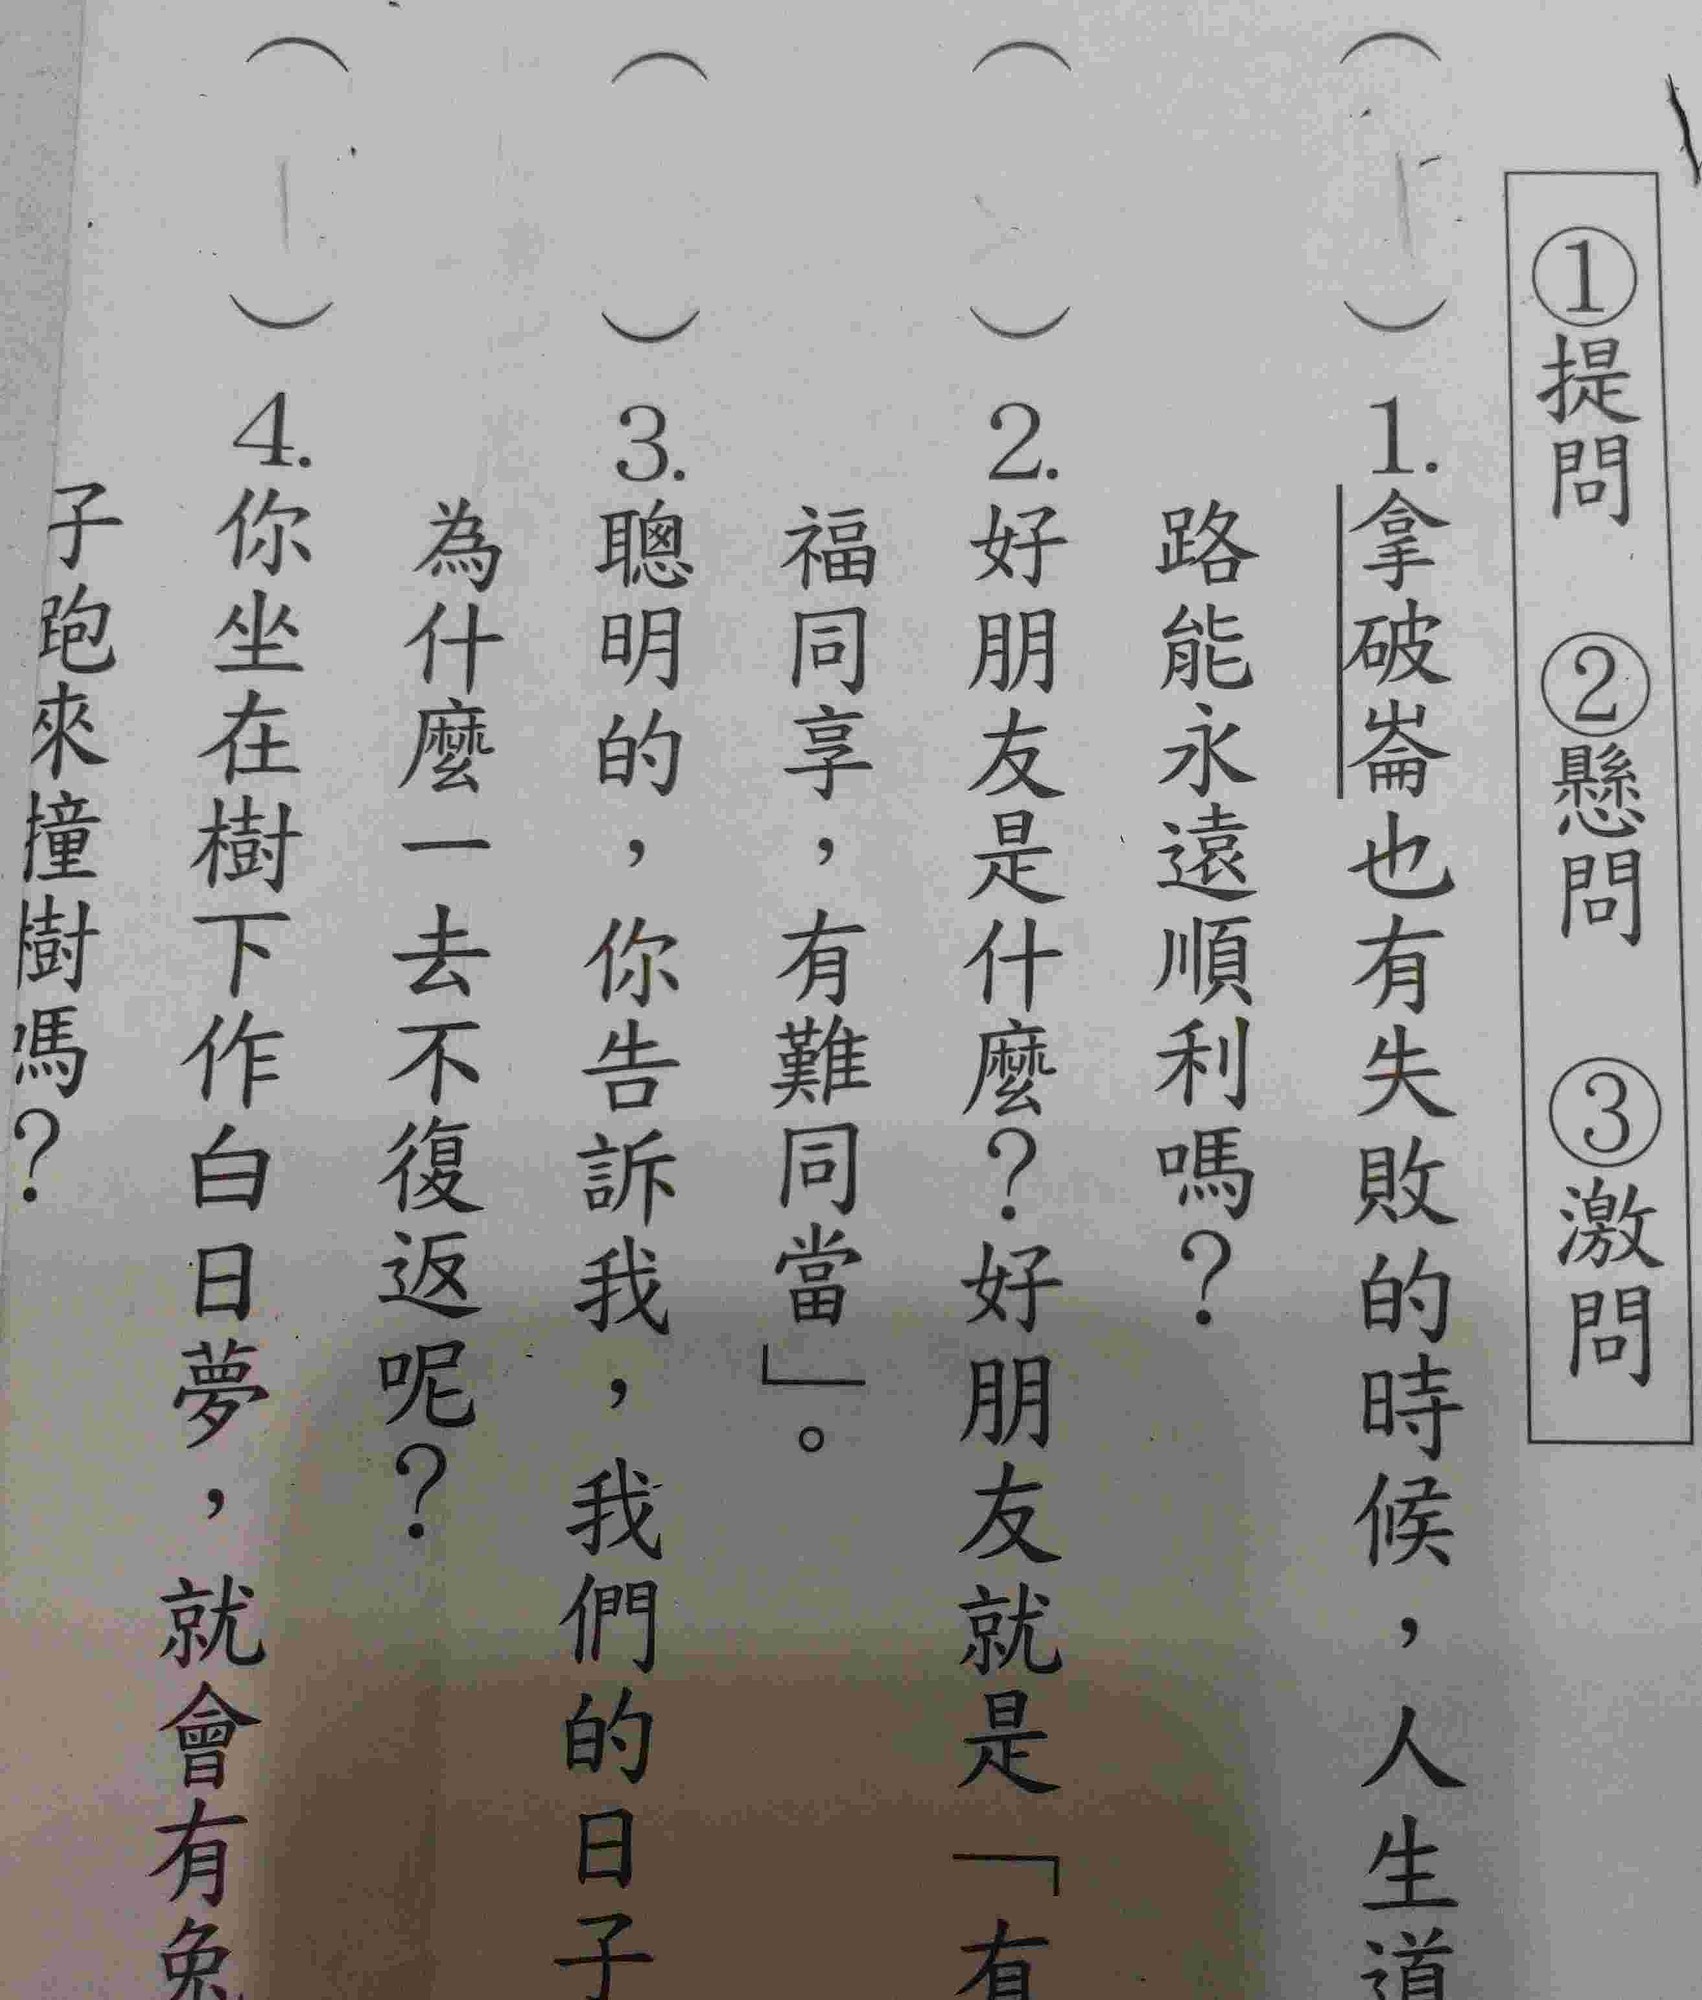 ①提問 ②懸問 ③激問
( )1.拿破崙也有失敗的時候，人生道
路能永遠順利嗎？
( )2.好朋友是什麼？好朋友就是「有
福同享，有難同當」。
( )3.聰明的，你告訴我，我們的日子
為什麼一去不復返呢？
( )4.你坐在樹下作白日夢，就會有兔
子跑來撞樹嗎？